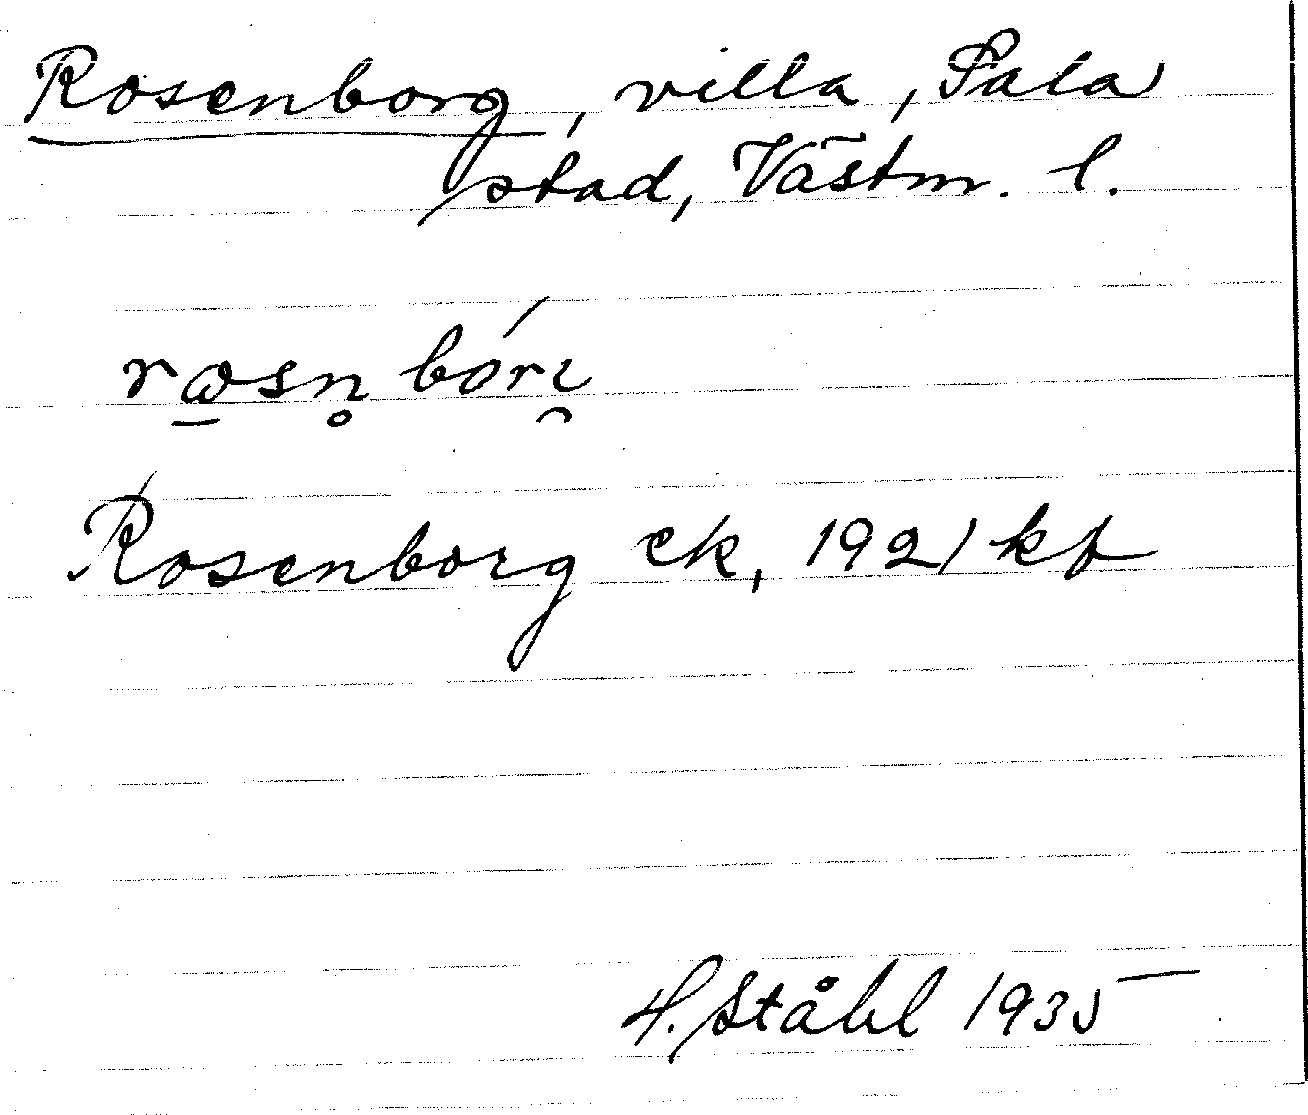 Rosenborg, villa, Sala
stad, Västm. l.
rω̱sn̥bórı̯
Rosenborg ek, 1921 kf
H. Ståhl 1935